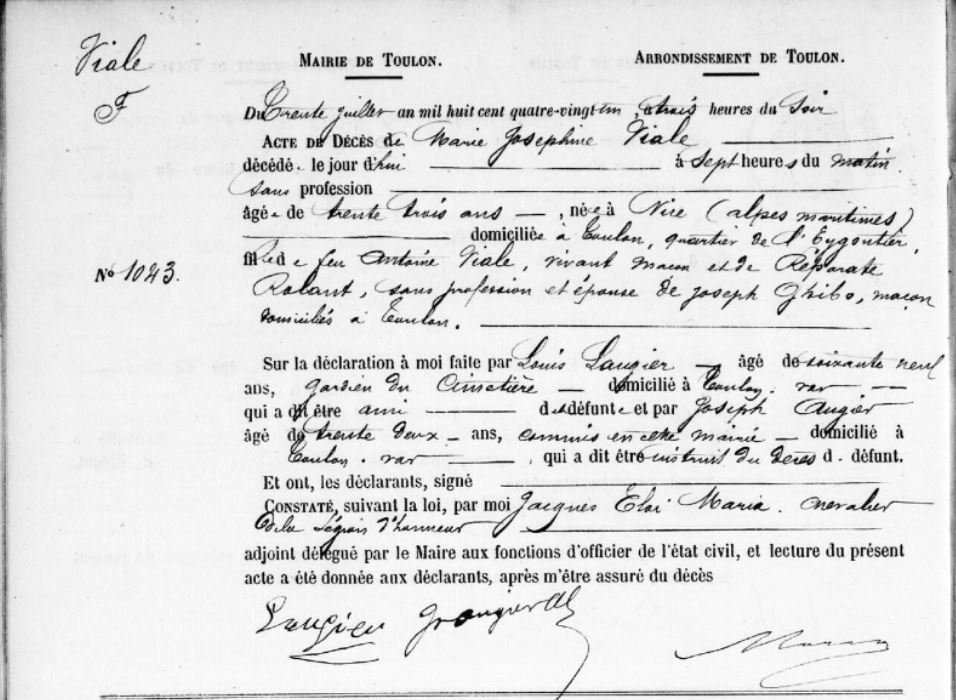 Viale
F
MAIRIE DE TOULON. ARRONDISSEMENT DE TOULON.
Du trente juillet an mil huit cent quatre-vingt-un, à trois heures du soir
ACTE DE DÉCÈS de Marie Josephine Viale
décédée le jour d'hui à sept heures du matin
sans profession
âgée de trente trois ans, née à Nice (alpes maritimes)
domiciliée à Toulon, quartier de l'Eygoutier,
fille de feu Antoine Viale, vivant maçon et de Réparate
Nº 1043.
Rolant, sans profession et épouse de Joseph Ghibo, maçon
domiciliés à Toulon.
Sur la déclaration à moi faite par Louis Laugier âgé de soixante neuf
ans, gardien du cimetière domicilié à Toulon. var
qui a dit être ami de la défunte et par Joseph Augier
âgé de trente deux ans, commis en cette mairie domicilié à
Toulon. var, qui a dit être instruit du décès d. défunt.
Et ont, les déclarants, signé
CONSTATÉ, suivant la loi, par moi Jacques Eloi Maria. chevalier
de la Légion d'honneur
adjoint délégué par le Maire aux fonctions d'officier de l'état civil, et lecture du présent
acte a été donnée aux déclarants, après m'être assuré du décès
Laugier